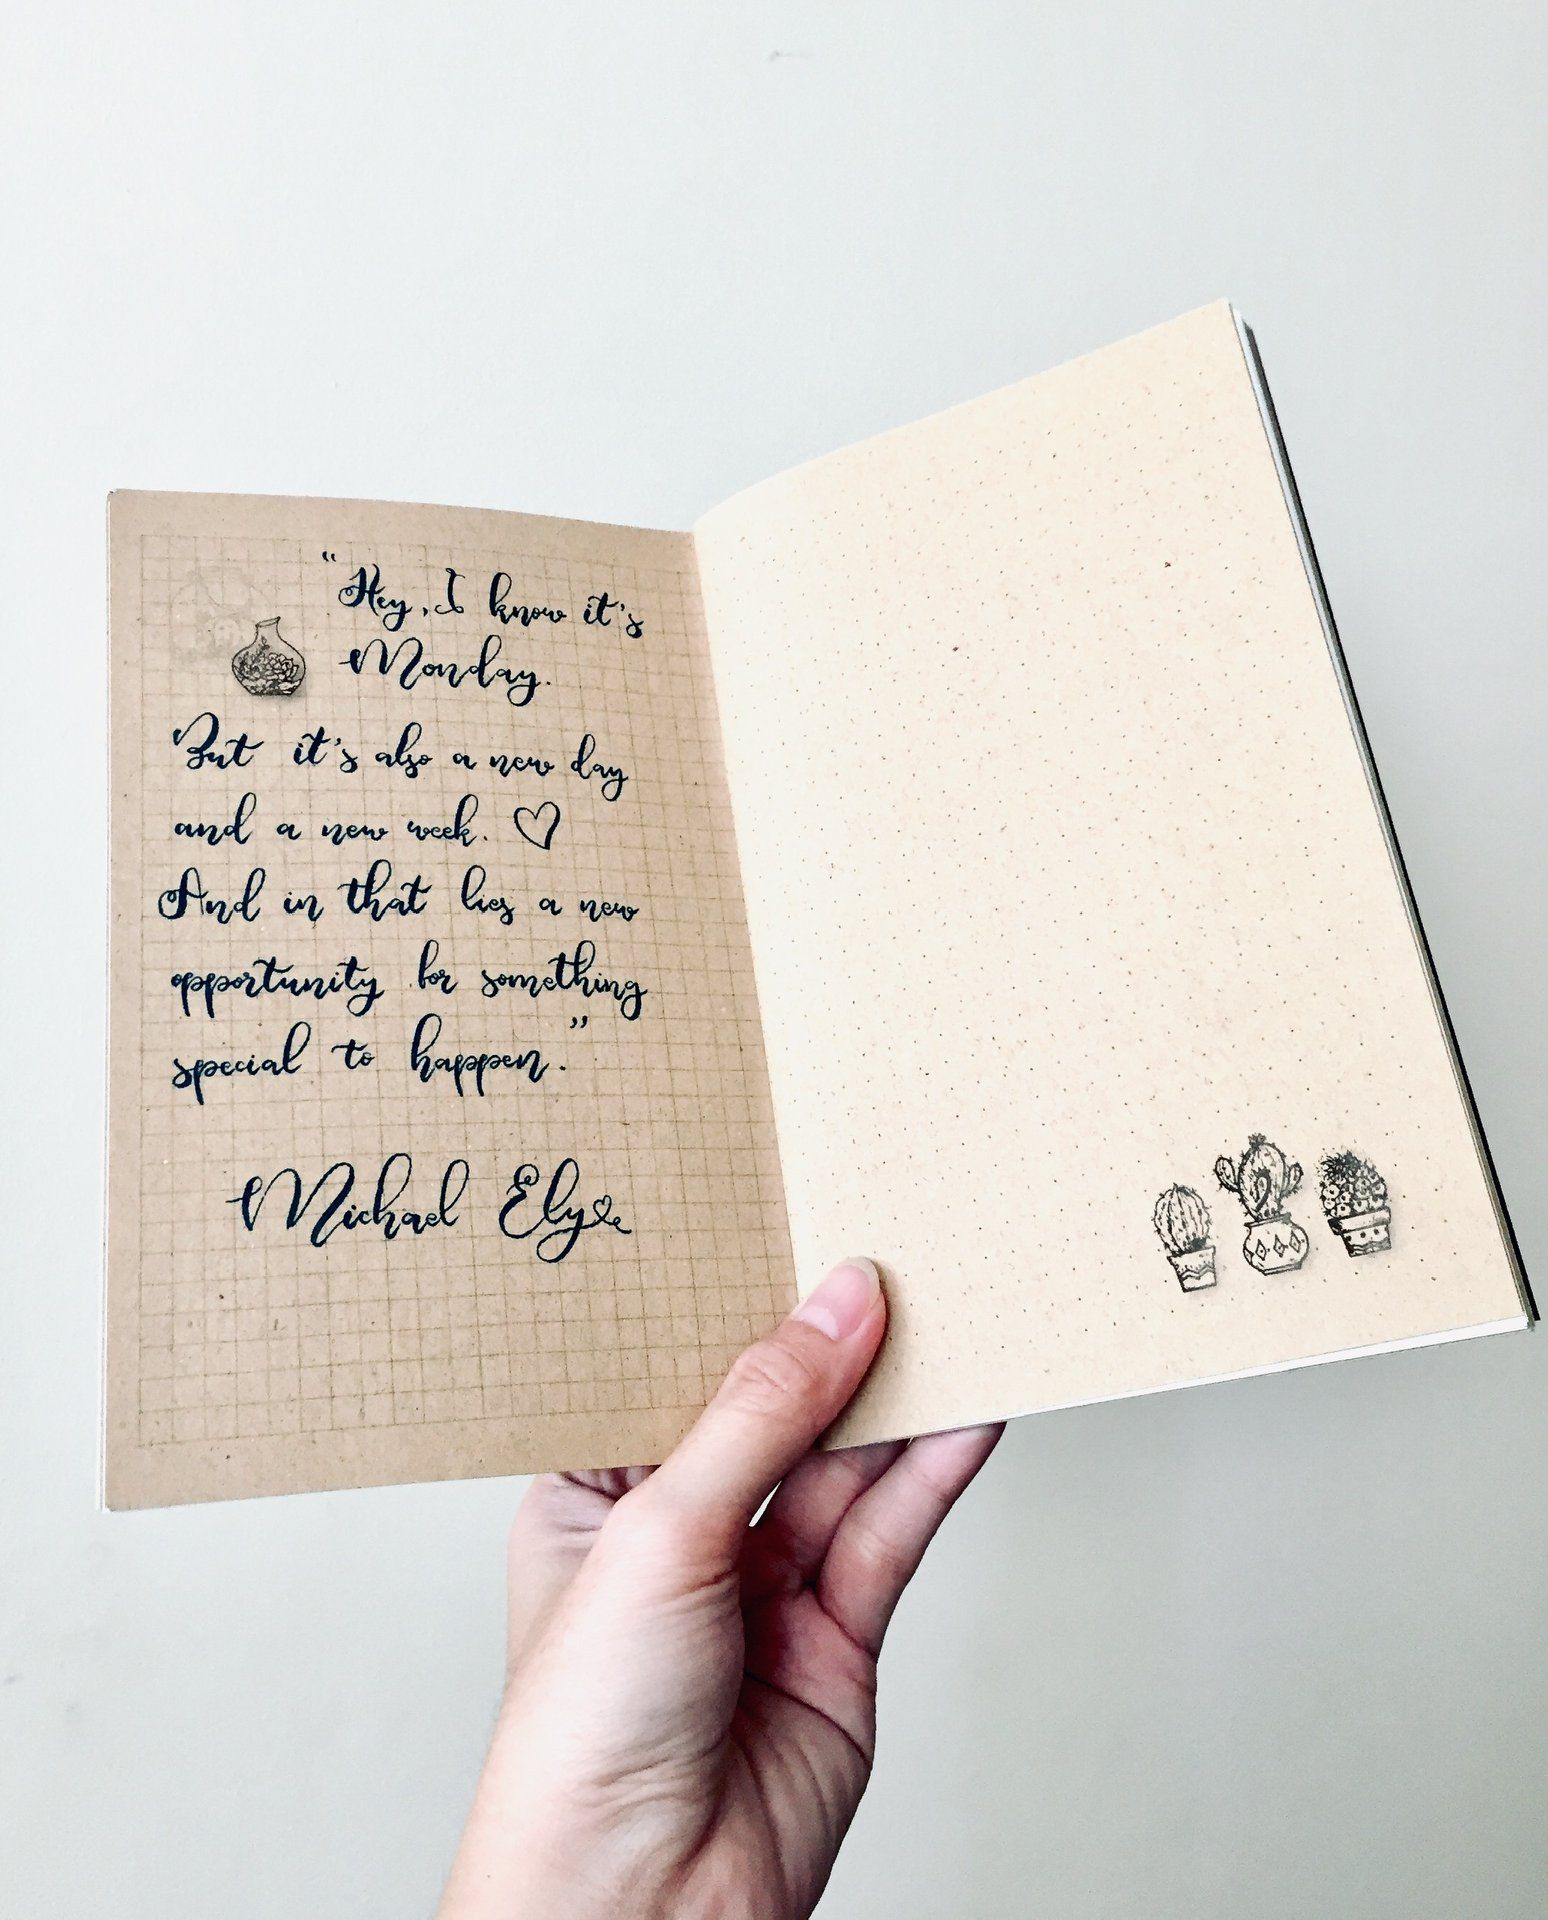 “Hey, I know it's
Monday.
But it's also a new day
and a new week. ♡
And in that lies a new
opportunity for something
special to happen.”
Michael Ely